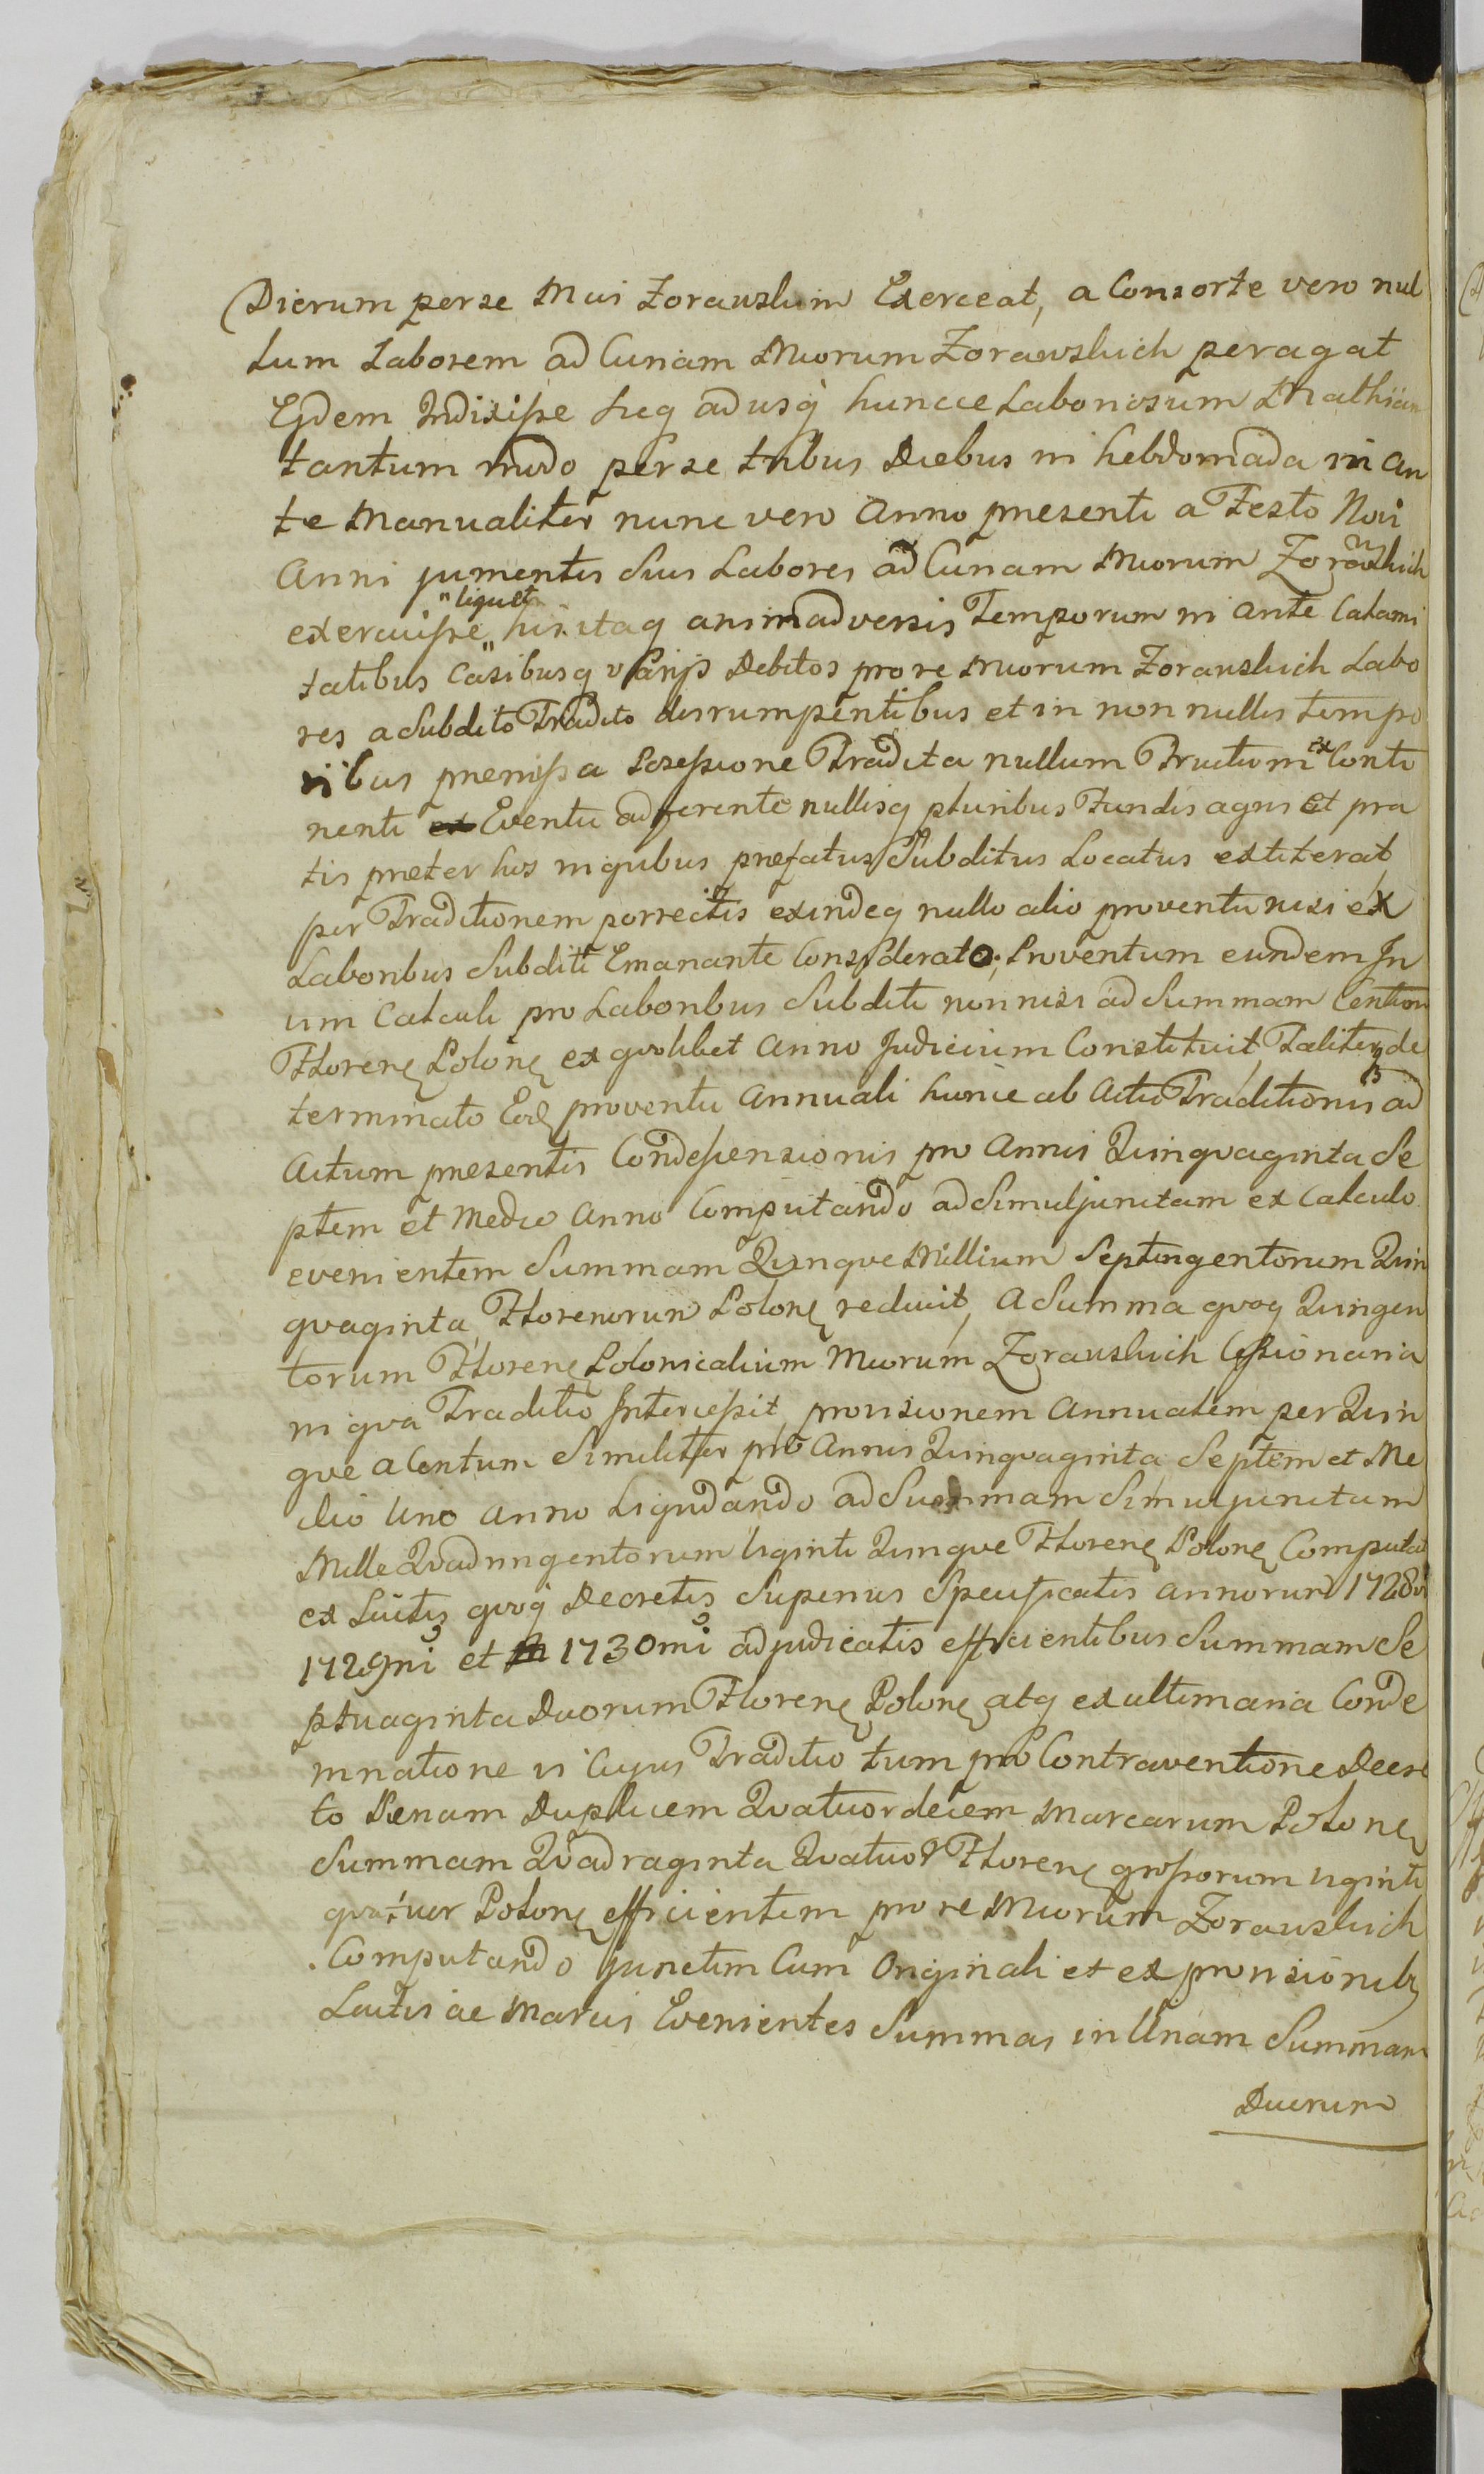 Dierum per se Mui Zorawskim Exerceat, a Consorte vero nul
lum Laborem ad Curiam Muorum Zorawskich peragat
Ejdem Indixisse sicq ad usq hunc ce Laboriosum Mathiam
tantum modo per se tribus Diebus in hebdomada in an
te Manualiter nunc vero Anno presenti a Festo Novi
Anni jumentis suis Labores ad Curiam Muorum Zorawskich
exercuisse "liquet" his itaq animadversis Temporum in ante Calami
tatibus Casibusq varijs Debitos pro re Muorum Zorawskich Labo
res a Subdito Tradito disrumpentibus et in non nullis tempo
ribus premissa Possessione Tradita nullum Fructum ex Conti
nenti Eventu adferente nullisq pluribus Fundis agris et pra
tis preter hos in quibus prefatus Subditus Locatus extiterat
per Traditionem porrectis exindeq nullo alio proventu nisi ex
Laboribus Subditi Emanante Considerato; Proventum eundem In
vim Calculi pro Laboribus Subditi non nisi ad Summam Centum
Floren Polon ex quolibet Anno Judicium Constituit Taliter de
terminato Eod proventu Annuali hunc ab Actu Traditionis ad
Actum presentis Condescensionis pro Annis Quinquaginta Se
ptem et Medio Anno Computando ad Simuljunctam ex Calculo
evenientem Summam Quinque Millium Septingentorum Quin
quaginta Florenorum Polon reducit, A Summa quoq Quingen
torum Floren Polonicalium Muorum Zorawskich Cessionaria
in qua Traditio Intercessit provisionem Annualem per Quin
que a Centum Similiter pro Annis Quinquaginta Septem et Me
dio Uno Anno Liquidando ad Summam Simul junctam
Mille Quadringentorum Viginti Quinque Floren Polon Computat
ex Luitis quoq Decretis Superius Specificatis Annorum 1728vi
1729ni et 1730mi adjudicatis efficientibus Summam Se
ptuaginta Duorum Floren Polon atq ex ultimaria Conde
mnatione vi Cujus Traditio tum pro Contraventione Decre
to Penam Duplicem Quatuordecem Marcarum Polon
Summam Quadraginta Quatuor Floren grossorum viginti
quatuor Polon efficientem pro re Muorum Zorawskich
Computando junctim Cum Originali et ex provisionib
Luitis ac Marcis Evenientes Summas in Unam Summam
Duorum